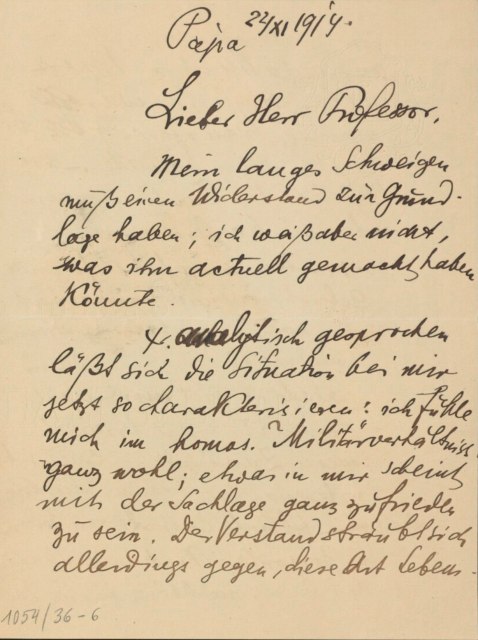 Pápa 24 XI 1914.
Lieber Herr Professor,
Mein langes Schweigen
muß einen Widerstand zur Grund-
lage haben; ich weiß aber nicht,
was ihn actuell gemacht haben
könnte.
analytisch gesprochen
läßt sich die Situation bei mir
jetzt so charakterisieren: ich fühle
mich im homos. Militärverhältniss
ganz wohl; etwas in mir scheint
mit der Sachlage ganz zufrieden
zu sein. Der Verstand sträubt sich
allerdings gegen diese Art Lebens-
1054/36-6